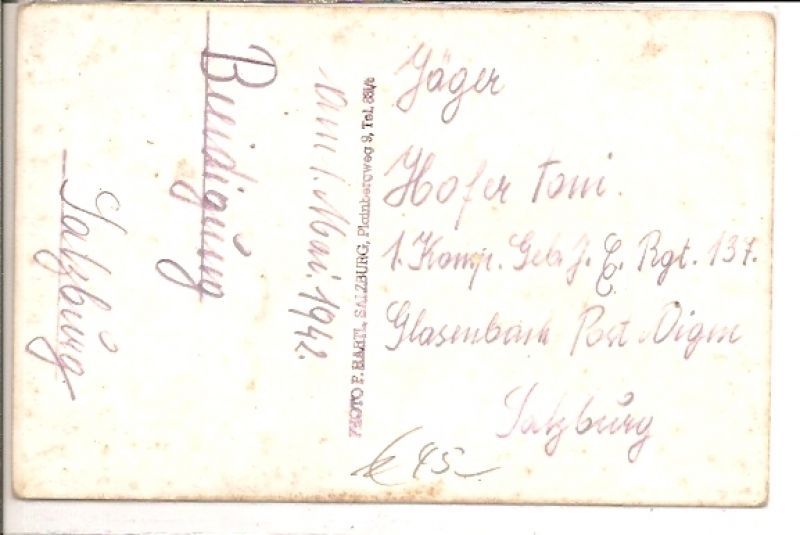 Salzburg
Beeidigung
am 1. Mai. 1942.
PHOTO F. HARTL, SALZBURG, Plainbergweg 9, Tel. 881/6
Jäger
Hofer Toni.
1. Komp. Geb. J. E. Rgt. 137.
Glasenbach Post Aigen
Salzburg
45